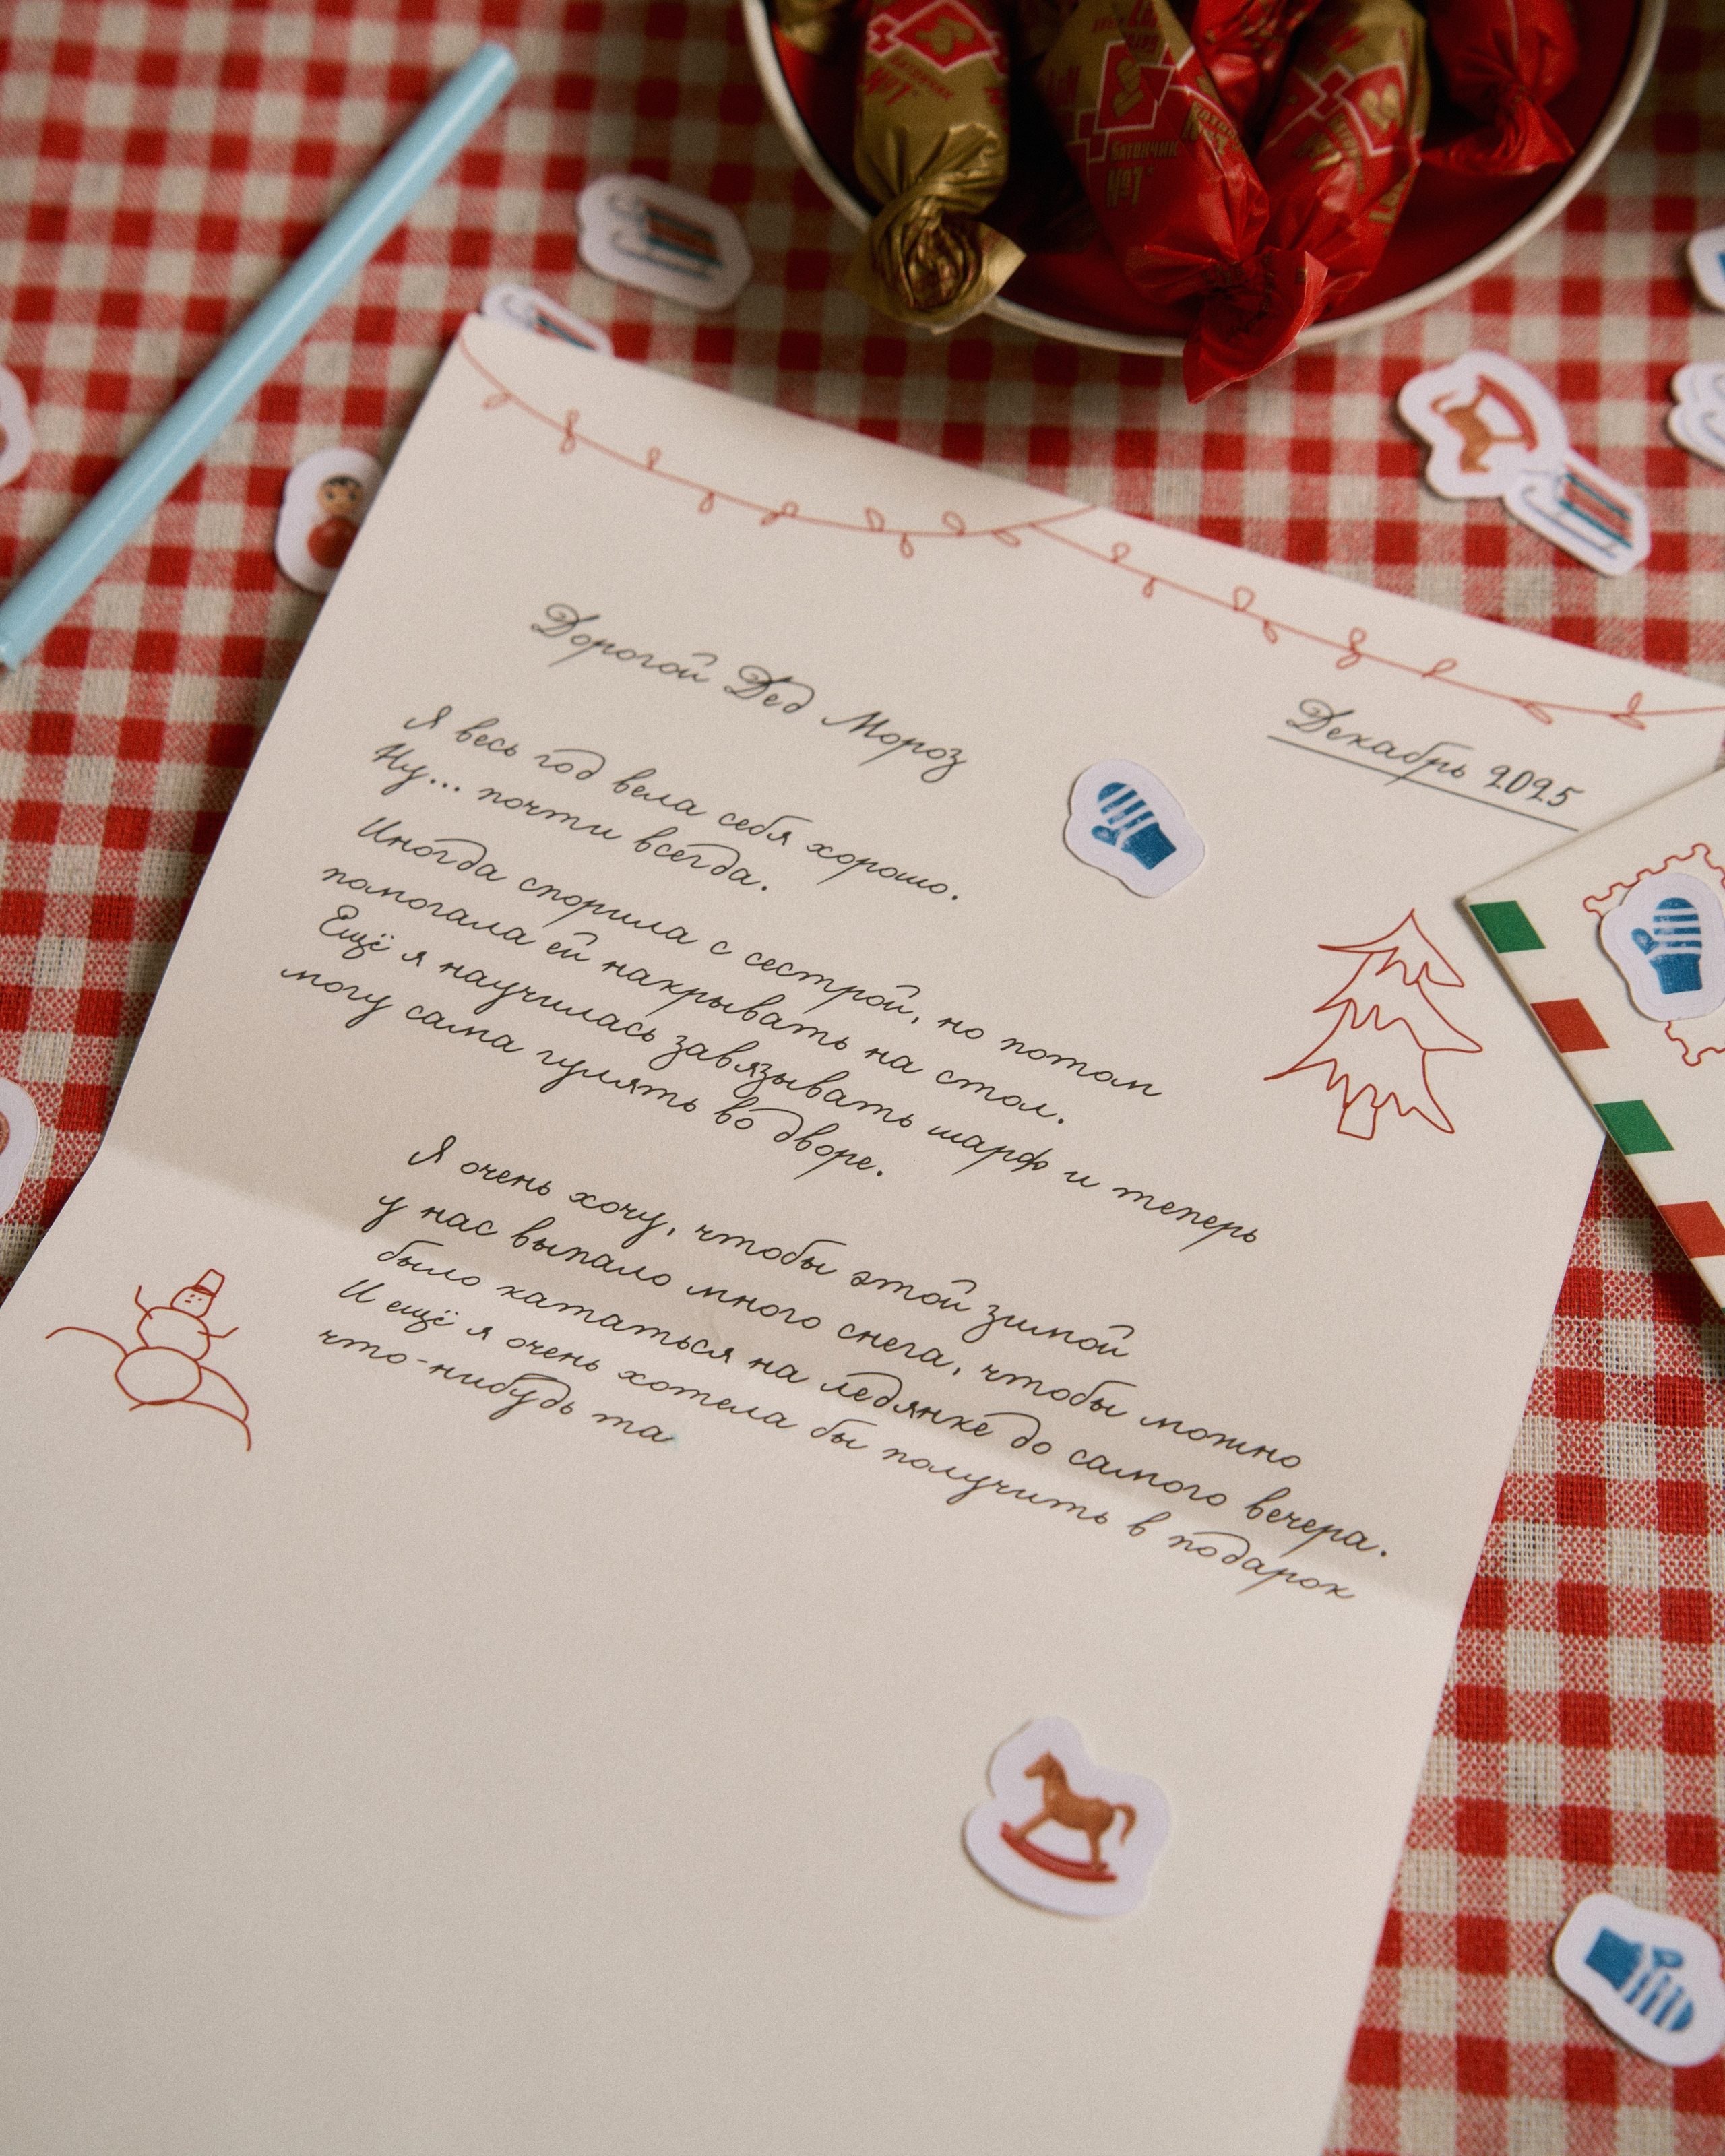 Батончик
№1
Батончик
№1
Дорогой Дед Мороз
Декабрь 2025
Я весь год вела себя хорошо.
Ну... почти всегда.
Иногда спорила с сестрой, но потом
помогала ей накрывать на стол.
Ещё я научилась завязывать шарф и теперь
могу сама гулять во дворе.
Я очень хочу, чтобы этой зимой
у нас выпало много снега, чтобы можно
было кататься на ледянке до самого вечера.
И ещё я очень хотела бы получить в подарок
что-нибудь та